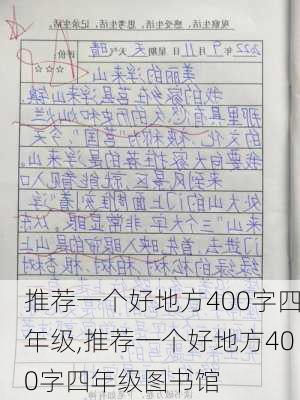 观察生活、感受生活、思考生活、记录生活。
2022年9月11日 星期天 天气 晴
评价
☆☆☆
美丽的浮来山
我的家乡在莒县浮来山,
那里具有悠久的历史和灿烂
的文化,被称为“莒国”。今天
我要向大家推荐的是浮来山。
来到风景区,就能看见入口
处大山门上面雕刻着“浮
来山”三个大字,非常显眼。从
门进去,首先映入眼帘的是山上
的松树 柏树
推荐一个好地方400字四
年级,推荐一个好地方40
0字四年级图书馆